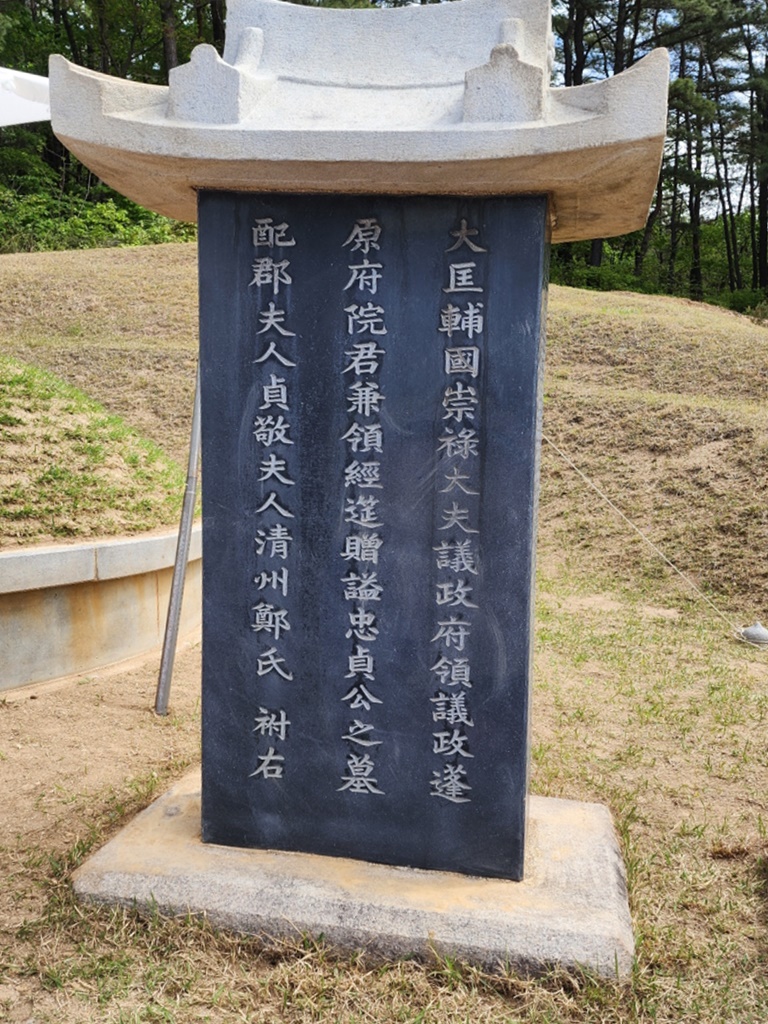 大匡輔國崇祿大夫議政府領議政蓬
原府院君兼領經筵贈謚忠貞公之墓
配郡夫人貞敬夫人清州鄭氏 祔右